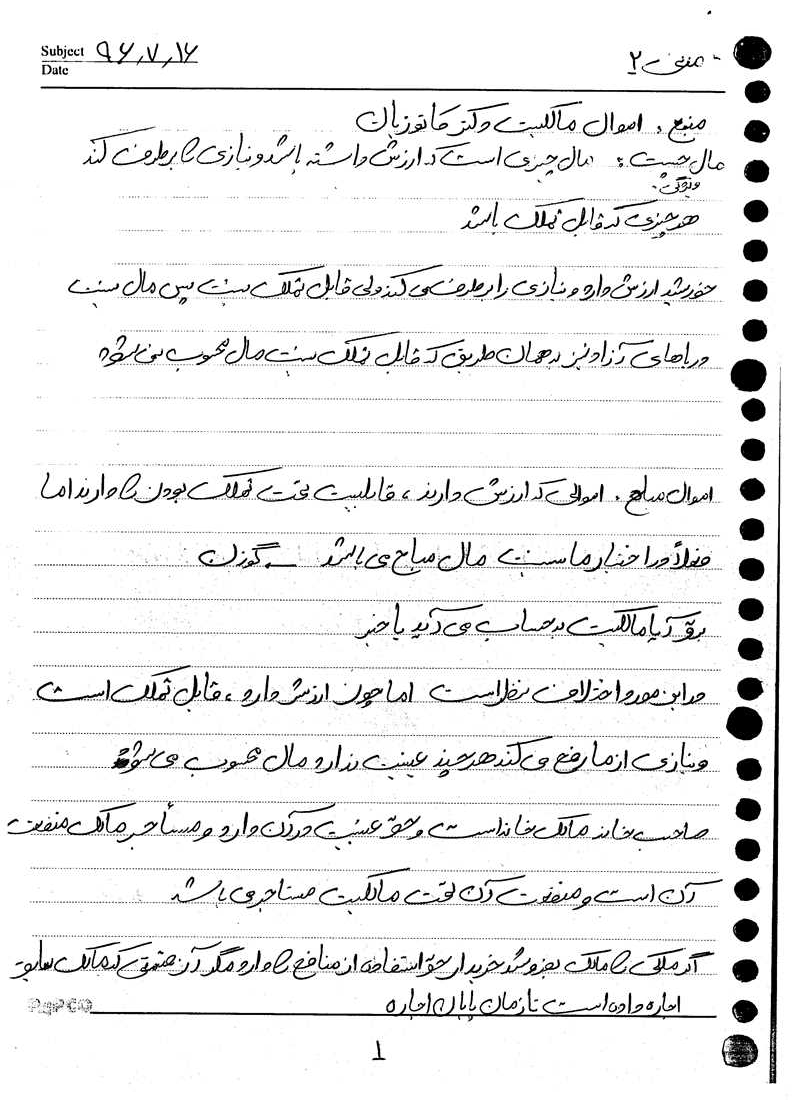 Subject ۹۶,۷,۱۶
Date
- مدنی ۲
منبع: اموال مالکیت دکتر کاتوزیان
مال چیست؟ مال چیزی است که ارزش داشته باشد و نیازی را برطرف کند
ویژگی:
هر چیزی که قابل تملک باشد
خورشید ارزش دارد و نیازی را برطرف می کند ولی قابل تملک نیست پس مال نیست
دریاهای آزاد نیز به همان طریق که قابل تملک نیست مال محسوب نمی شود
اموال مباح: اموالی که ارزش دارند، قابلیت تحت تملک بودن را دارند اما
فعلاً در اختیار ما نیست مال مباح می باشد ← گوزن
برق آیا مالکیت به حساب می آید یا خیر
در این مورد اختلاف نظر است اما چون ارزش دارد، قابل تملک است
و نیازی از ما رفع می کند هر چند عینیت ندارد مال محسوب می شود
صاحب خانه مالک خانه است و حق عینیت در آن دارد و مستأجر مالک منفعت
آن است و منفعت آن تحت مالکیت مستاجر می باشد
اگر ملکی را مالک بفروشد خریدار حق استفاده از منافع را دارد مگر آن قسمتی که مالک سابق
اجاره داده است تا زمان پایان اجاره
PaPCO
1